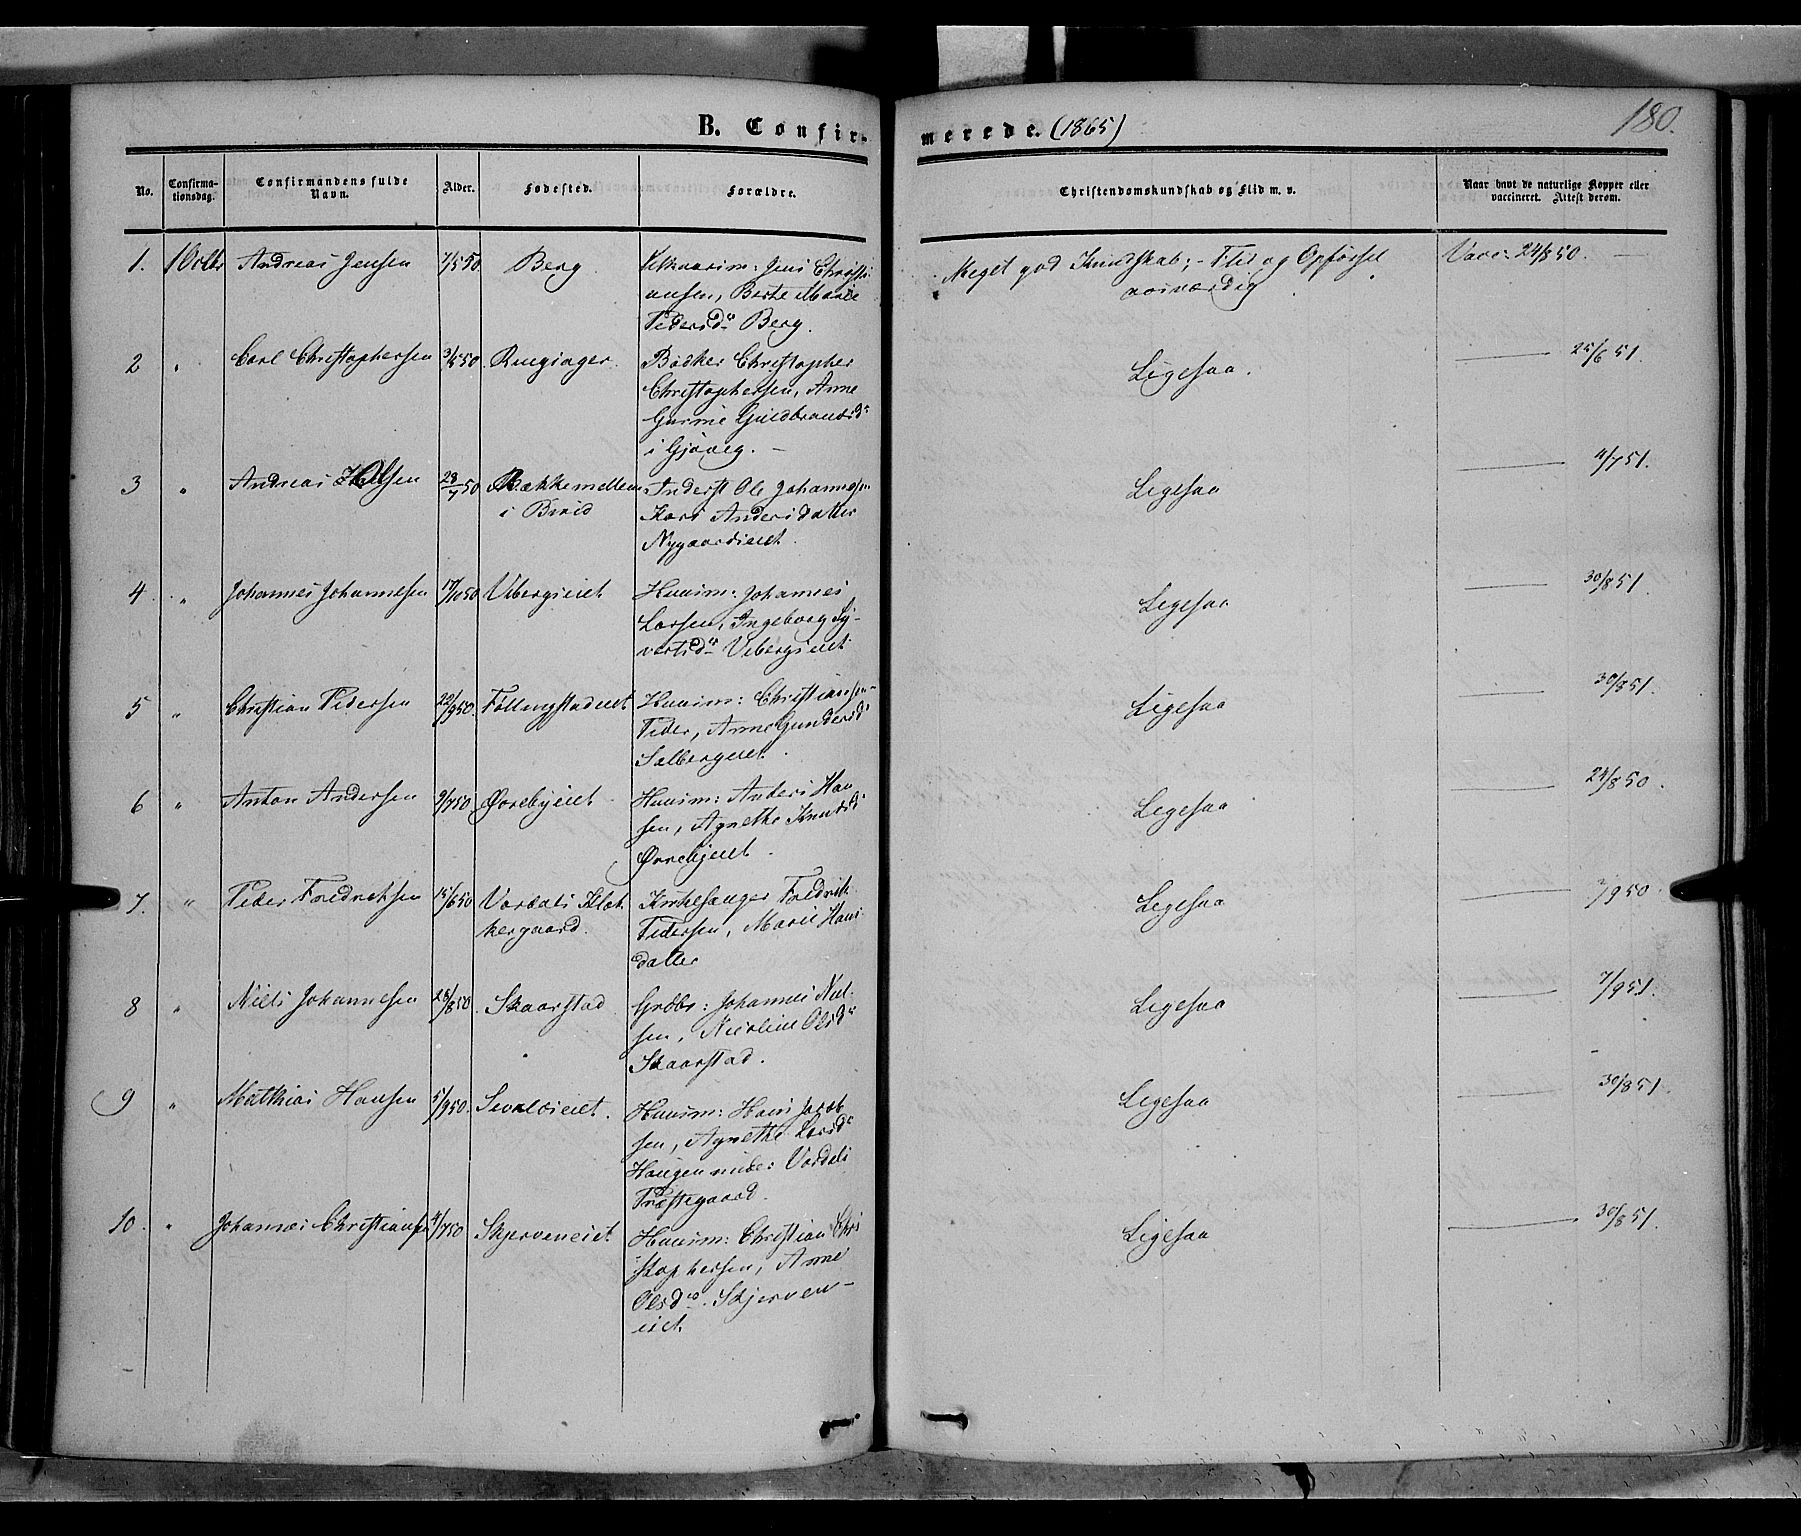 B. Confir-
merede. (1865)
180.
No.
Confirma-
tionsdag.
Confirmandens fulde
Navn.
Alder.
Fødested.
Forældre.
Christendomskundskab og Flid m. v.
Naar havt de naturlige Kopper eller
vaccineret. Attest derom.
1. 1 Octbr Andreas Jensen 7/5 50 Berg Jens Christi-
ansen, Berte Marie
Pedersdr Berg.
Meget god Kundskab; - Flid og Opførsel
rosværdig
Vacc: 24/8 50. —
2 " Carl Christophersen 3/6 50 Ringsager. Bødker Christopher
Christophersen, Anne
Gurine Guldbrandsdr
i Gjøvig. —
Ligesaa. — 25/6 51.
3 " Andreas Olsen 28/7 50 Bækkemellem
i Birid
Inderst Ole Johannesen
Kari Andersdatter
Nygaardseiet.
Ligesaa — 11/7 51.
4 " Johannes Johannesen 17/10 50 Vibergseiet Huusm: Johannes
Larsen, Ingeborg Sy-
vertsdr Vibergseiet
Ligesaa — 30/8 51.
5 " Christian Pedersen 22/9 50. Føllingstadeiet Huusm: Christiansen
Peder, Anne Gundersdr
Salbergeiet.
Ligesaa — 30/8 51.
6 " Anton Andersen 9/7 50 Øverbyeiet Huusm: Anders Han
sen, Agnethe Knudsdr
Øverbyeiet.
Ligesaa — 24/8 50.
7. " Peder Fredriksen 15/6 50 Vardals Klok
kergaard.
Kirkesanger Fredrik
Pedersen, Marie Hans
datter
Ligesaa — 7/9 50
8 " Niels Johannesen 28/8 50 Skaarstad Grdbr: Johannes Niel-
sen, Nicoline Olsdr
Skaarstad.
Ligesaa — 7/9 51.
9 " Matthias Hansen 5/9 50. Huusm: Hans Jacob
sen, Agnethe Larsdr
Haugen under Vardals
Præstegaard.
Ligesaa — 30/8 51.
10. " Johannes Christiansen 4/7 50 Skjerveneiet Huusm: Christian Chri
stophersen, Anne
Olsdr. Skjerven-
eiet
Ligesaa — 30/8 51.